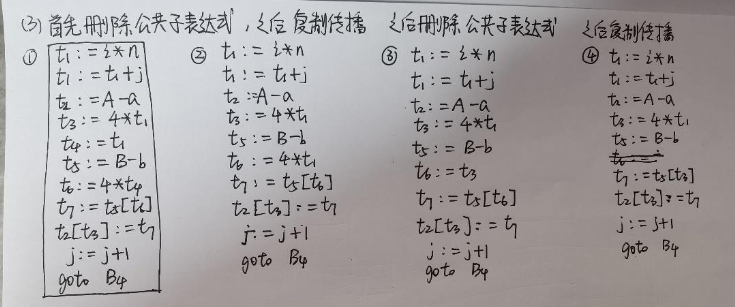 (3) 首先删除公共子表达式,之后复制传播 之后删除公共子表达式 之后复制传播
① t1:=i*n
t1:=t1+j
t2:=A-a
t3:=4*t1
t4:=t1
t5:=B-b
t6:=4*t4
t7:=t5[t6]
t2[t3]:=t7
j:=j+1
goto B4
② t1:=i*n
t1:=t1+j
t2:=A-a
t3:=4*t1
t5:=B-b
t6:=4*t1
t7:=t5[t6]
t2[t3]:=t7
j:=j+1
goto B4
③ t1:=i*n
t1:=t1+j
t2:=A-a
t3:=4*t1
t5:=B-b
t6:=t3
t7:=t5[t6]
t2[t3]:=t7
j:=j+1
goto B4
④ t1:=i*n
t1:=t1+j
t2:=A-a
t3:=4*t1
t5:=B-b
t7:=t5[t3]
t2[t3]:=t7
j:=j+1
goto B4